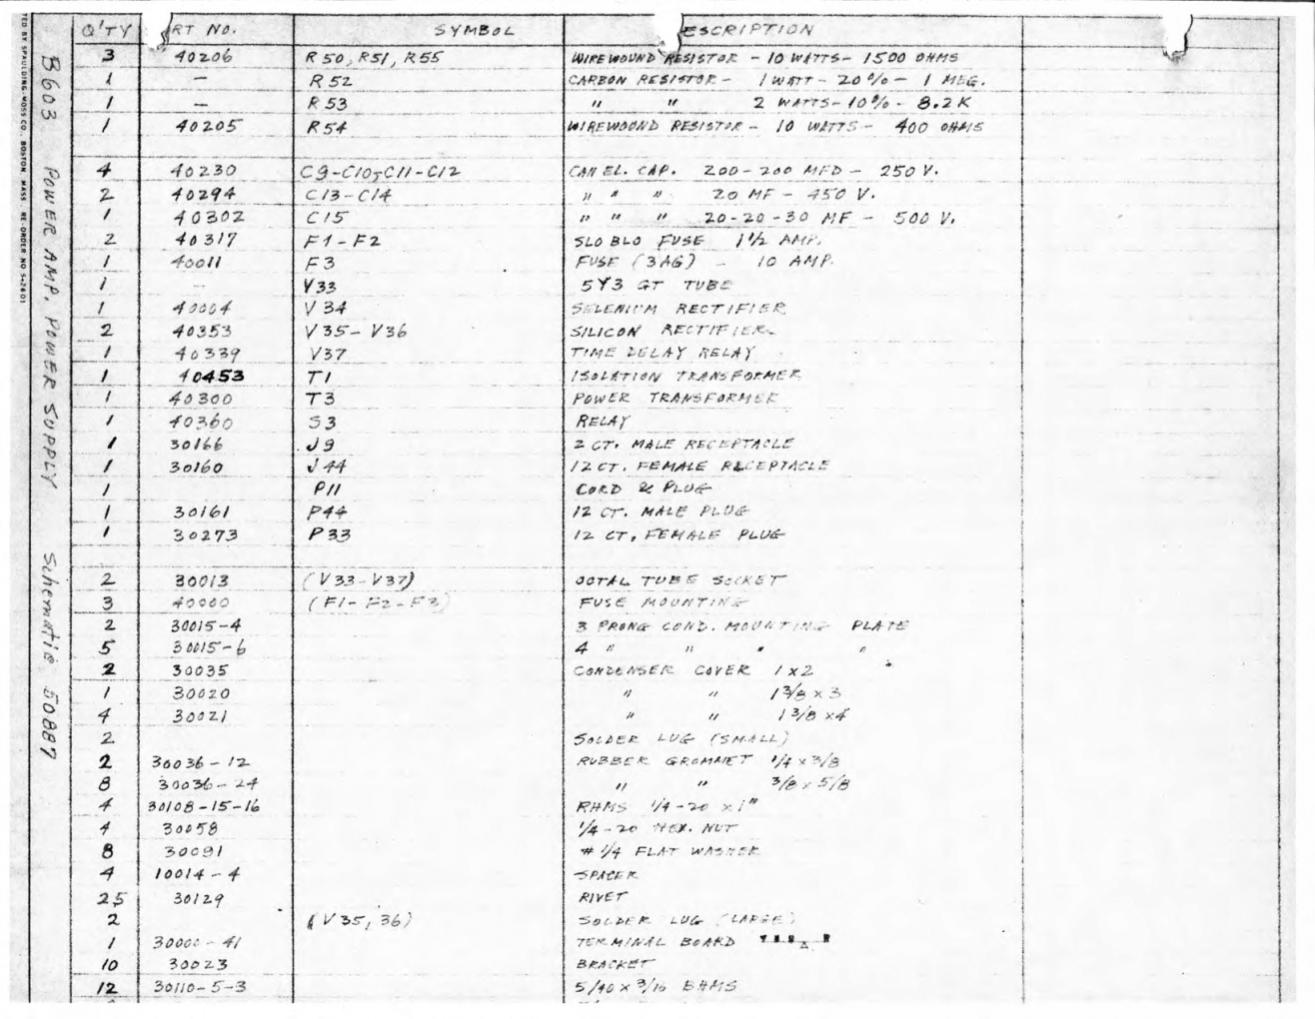 Q'TY RT NO. SYMBOL ESCRIPTION
3 40206 R50, R51, R55 WIREWOUND RESISTOR - 10 WATTS - 1500 OHMS
1 — R52 CARBON RESISTOR - 1 WATT - 20% - 1 MEG.
1 — R53 " " 2 WATTS - 10% - 8.2K
1 40205 R54 WIREWOUND RESISTOR - 10 WATTS - 400 OHMS
4 40230 C9-C10, C11-C12 CAN EL. CAP. 200-200 MFD - 250 V.
2 40294 C13-C14 " " " 20 MF - 450 V.
1 40302 C15 " " " 20-20-30 MF - 500 V.
2 40317 F1-F2 SLO BLO FUSE 1 1/2 AMP.
1 40011 F3 FUSE (3AG) - 10 AMP.
1 — V33 5Y3 GT TUBE
1 40004 V34 SELENIUM RECTIFIER
2 40353 V35-V36 SILICON RECTIFIER
1 40339 V37 TIME DELAY RELAY
1 40453 T1 ISOLATION TRANSFORMER
1 40300 T3 POWER TRANSFORMER
1 40360 S3 RELAY
1 30166 J9 2 CT. MALE RECEPTACLE
1 30160 J44 12 CT. FEMALE RECEPTACLE
1 P11 CORD & PLUG
1 30161 P44 12 CT. MALE PLUG
1 30273 P33 12 CT. FEMALE PLUG
2 30013 (V33-V37) OCTAL TUBE SOCKET
3 40000 (F1-F2-F3) FUSE MOUNTING
2 30015-4 3 PRONG COND. MOUNTING PLATE
5 30015-6 4 " " " "
2 30035 CONDENSER COVER 1 x 2
1 30020 " " 1 3/8 x 3
4 30021 " " 1 3/8 x 4
2 SOLDER LUG (SMALL)
2 30036-12 RUBBER GROMMET 1/4 x 3/8
8 30036-24 " " 3/8 x 5/8
4 30108-15-16 RHMS 1/4-20 x 1"
4 30058 1/4-20 HEX. NUT
8 30091 # 1/4 FLAT WASHER
4 10014-4 SPACER
25 30129 RIVET
2 (V35, 36) SOLDER LUG (LARGE)
1 30000-41 TERMINAL BOARD
10 30023 BRACKET
12 30110-5-3 5/40 x 3/16 BHMS
B603 POWER AMP. POWER SUPPLY Schematic 50887
TED BY SPAULDING-MOSS CO., BOSTON, MASS. RE-ORDER NO.